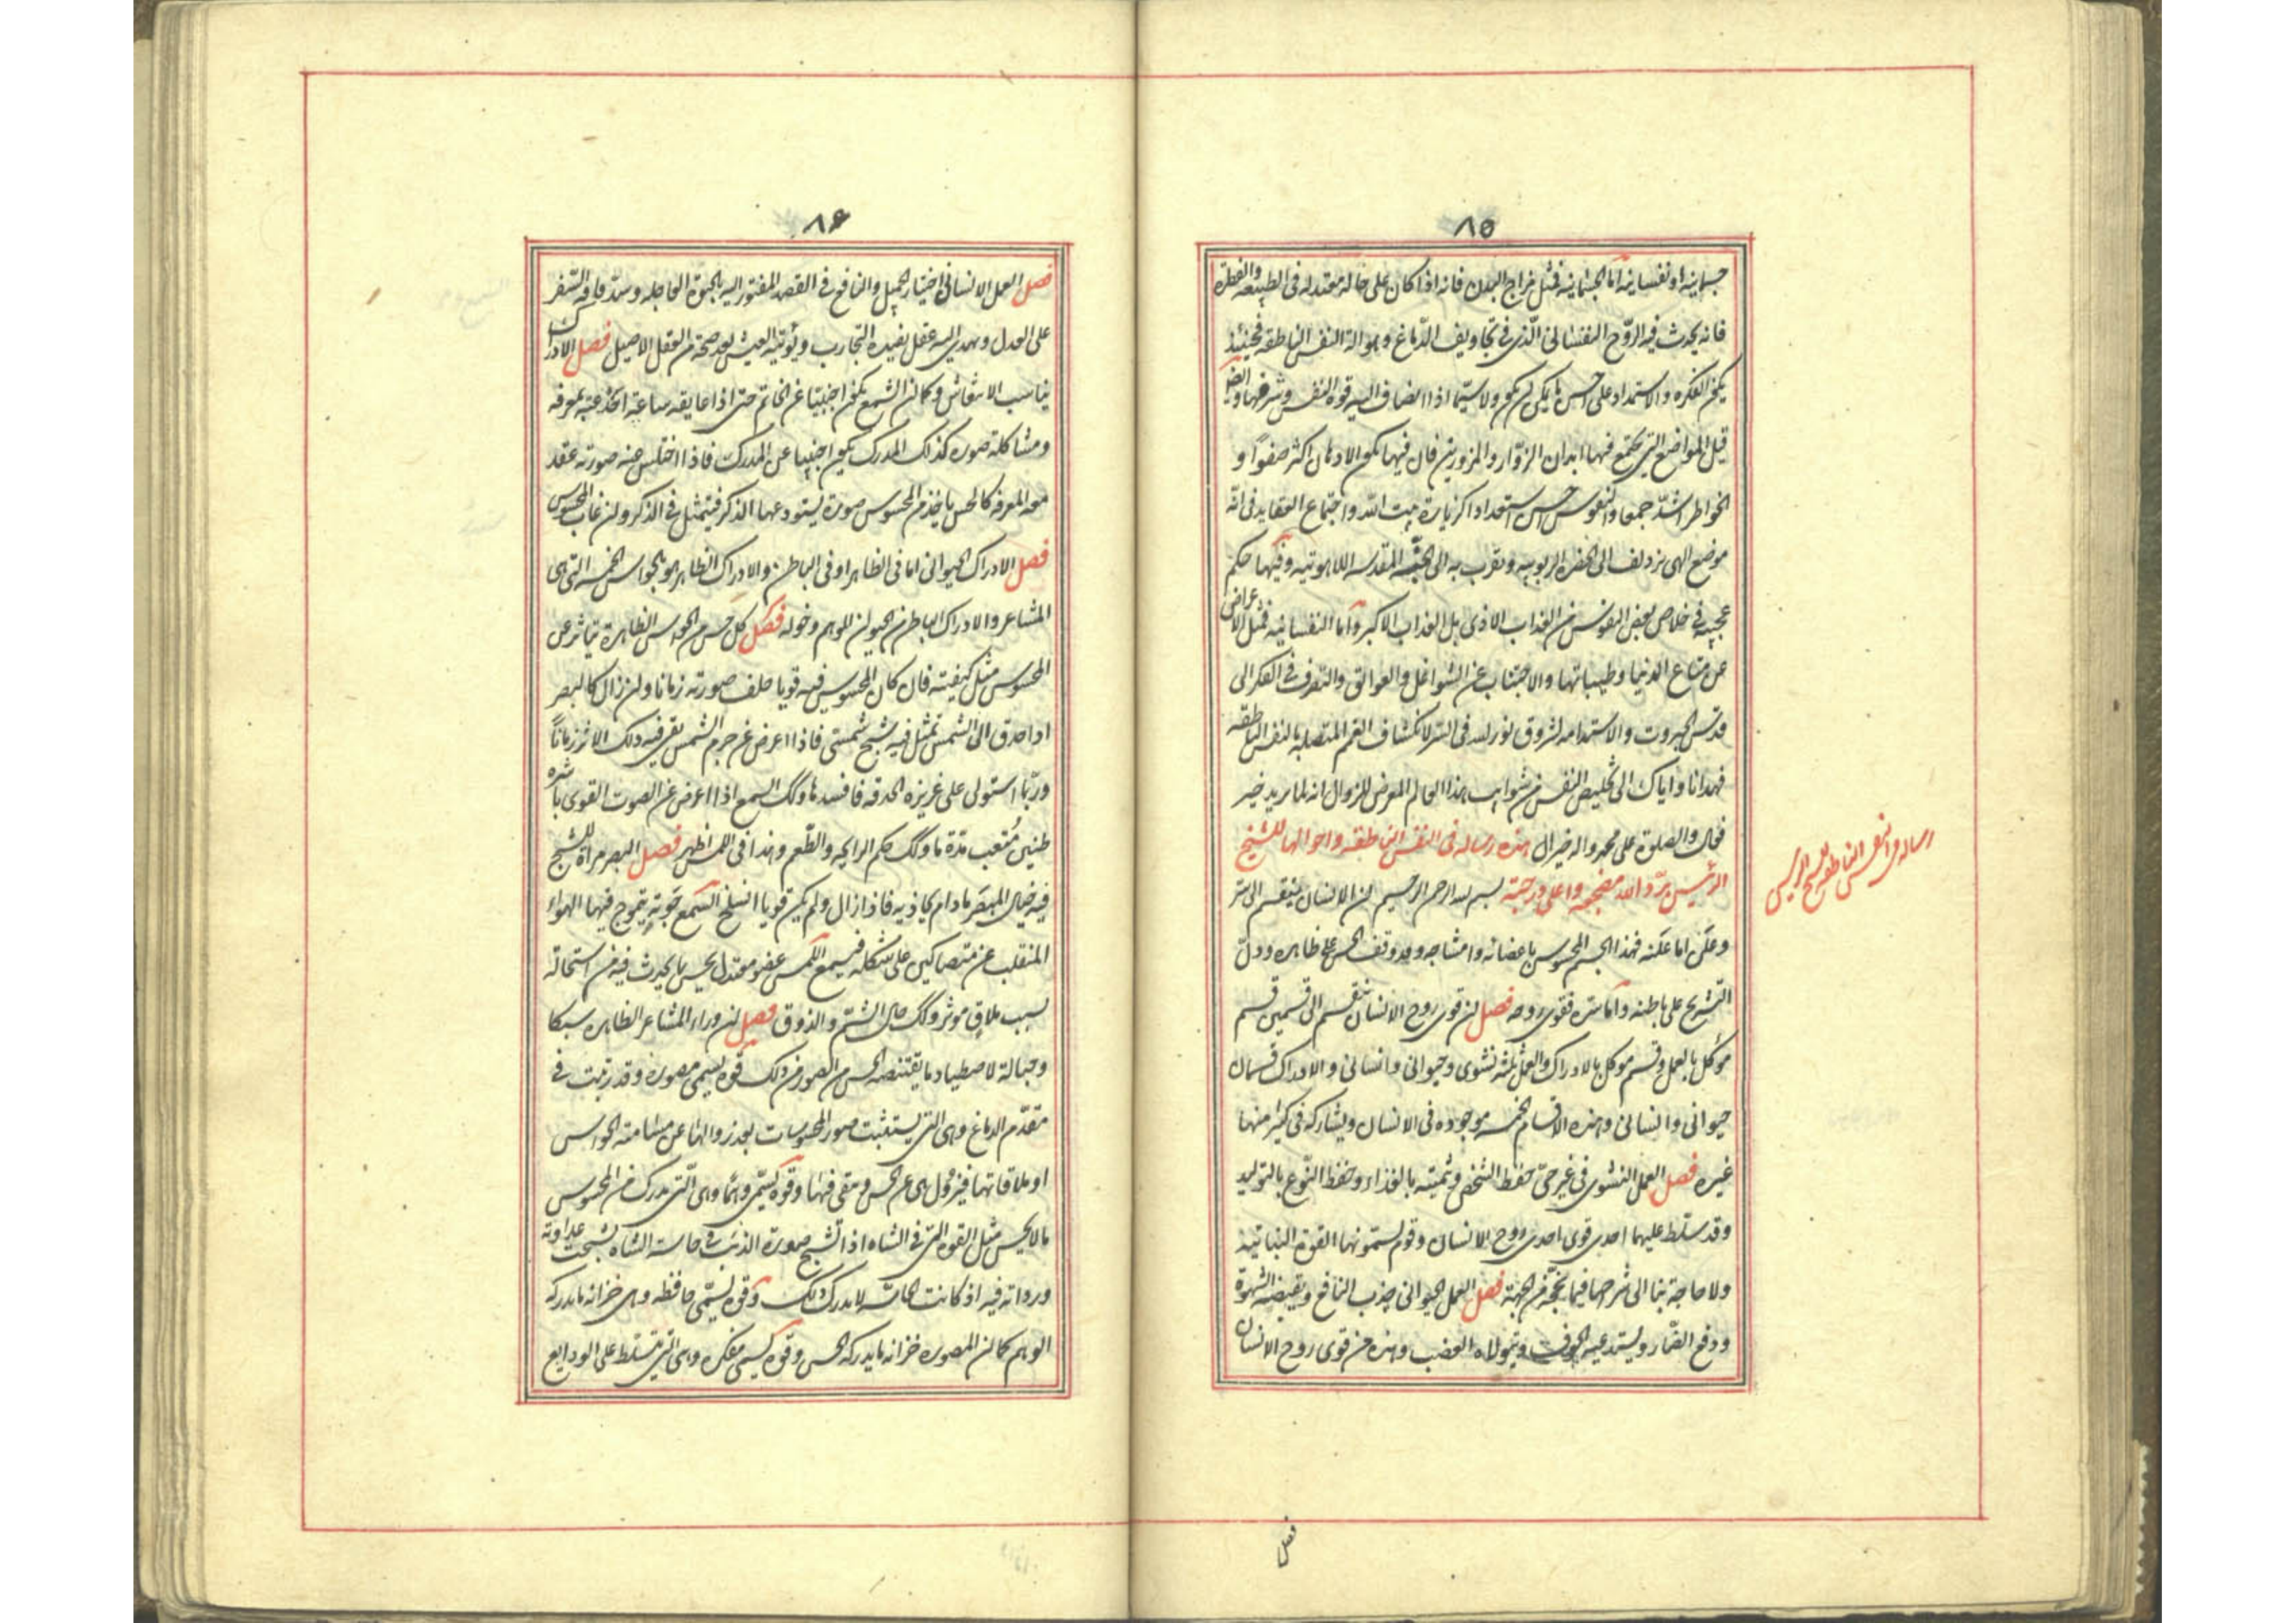 ٨٥
جسمانية او نفسانية اما الجسمانية فمثل مزاج البدن فانه اذا كان على حالة معتدلة فى الطبيعة والفطرة
فانه يحدث فيه الروح النفسانى الذى فى تجاويف الدماغ وهو الة النفس الناطقة فحينئذ
يكون الفكرة والاستمداد على احسن ما يمكن ان يكون ولا سيما اذا انضاف اليه قوة النفس وشرفها وايضا
قبل المواضع التى يجتمع فيها ابدان الزوار والمزورين فان فيها يكون الاذهان اكثر صفوا و
الخواطر اشد جمعا والنفوس احسن استعدادا كزيارة بيت الله واجتماع العقايد فى انه
موضع الهى يزدلف الى الحضرة الربوبيه ويتقرب به الى الجنبة المقدسه اللاهوتيه وفيها حكم
عجيبه فى خلاص بعض النفوس من العذاب الادنى بل العذاب الاكبر واما النفسانيه فمثل الاعراض
عن متاع الدنيا وطيباتها والاجتناب عن الشواغل والعوائق والتصرف فى الفكر الى
قدس الجبروت والاستدامة لشروق نور الله فى السر لانكشاف الغم المتصلة بالنفس الناطقه
فهدانا واياك الى تخليص النفس من شوايب هذا العالم المعرض للزوال انه لما يريد خبير
فعال والصلوة على محمد واله خير ال هذه رساله فى النفس الناطقه واحوالها للشيخ
الرئيس برد الله مضجعه واعلى درجته بسم الله الرحمن الرحيم ان الانسان ينقسم الى سر
وعلن اما علنه فهذا الجسم المحسوس باعضائه وامشاجه وقد وقف الحس على ظاهره ودل
التشريح على باطنه واما سره فقوى روحه فصل ان قوى روح الانسان تنقسم الى قسمين قسم
موكل بالعمل وقسم موكل بالادراك والعمل ثلثة نشوى وحيوانى وانسانى والادراك قسمان
حيوانى وانسانى وهذه الاقسام الخمسه موجوده فى الانسان ويشاركه فى كثير منها
غيره فصل العمل النشوى فى غير حى حفظ الشخص وتنميته بالغذاء وحفظ النوع بالتوليد
وقد سلط عليهما احدى قوى احدى روح الانسان وقوم يسمونها القوة النباتية
ولا حاجة بنا الى شرحها فيما نحن من الجهة فصل العمل الحيوانى جذب النافع ويقتضيه الشهوة
ودفع الضار ويستدعيه الخوف ويتولاه الغضب وهذه من قوى روح الانسان
رساله فى النفس الناطقه للشيخ الرئيس
فصل
٨۶
فصل العمل الانسانى اختيار الجميل والنافع فى القصد المفتور اليه بالحيوة العاجله وسد فاقه السفر
على العدل ويهدى اليه عقل يفيده التجارب ويؤتيه العيش بعد صحة من العقل الاصيل فصل الادراك
يناسب الانتقاش وكما ان الشمع يكون اجنبيا عن الخاتم حتى اذا عانقه ساعة اخذ عنه بمعرفه
ومشاكلة صوره كذلك المدرك يكون اجنبيا عن المدرك فاذا اختلس عنه صورته عقد
معه المعرفه كالحس ياخذ من المحسوس صورة يستودعها الذكر فيتمثل فى الذكر وان غاب المحسوس
فصل الادراك الحيوانى اما فى الظاهر او فى الباطن والادراك الظاهر هو بالحواس الخمسه التى هى
المشاعر والادراك الباطن من الحيوان للوهم وخوله فصل كل حس من الحواس الظاهرة يتاثر عن
المحسوس مثل كيفيته فان كان المحسوس فيه قويا خلف صورته زمانا وان زال كالبصر
اذا حدق الى الشمس تمثل فيه شبح شمسى فاذا اعرض عن جرم الشمس بقى فيه ذلك الاثر زمانا
وربما استولى على غريزة الحدقه فافسدها وكذلك السمع اذا اعرض عن الصوت القوى باشره
طنين متعب مدة ما وكذلك حكم الرايحه والطعم وهذا فى اللمس اظهر فصل البصر مرآة للشبح
فيه خيال المبصَر مادام يحاذيه فاذا زال ولم يكن قويا انسلخ السمع جوبة يتموج فيها الهواء
المنقلب عن متصاكين على شكله فيسمع اللمس عضو معتدل يحس بما يحدث فيه من استحالة
بسبب ملاق موثر وكذلك حال الشم والذوق فصل ان وراء المشاعر الظاهرة سبكا
وحبالة لاصطياد ما يقتنصه الحس من الصور من ذلك قوة يسمى مصورة وقد رتبت فى
مقدم الدماغ وهى التى يستثبت صور المحسوسات بعد زوالها عن مسامتة الحواس
او ملاقاتها فيزول هى عن الحس ويبقى فيها وقوة يسمى وهما وهى التى يدرك من المحسوس
ما لا يحس مثل القوة التى فى الشاه اذا تشبح صورة الذئب فى حاسة الشاه تشبحت عداوته
ورداته فيه اذ كانت الحاسة لا يدرك ذلك وقوة يسمى حافظه وهى خزانه ما يدركه
الوهم كما ان المصوره خزانه ما يدركه الحس وقوة يسمى مفكره وهى التى يتسلط على الودايع